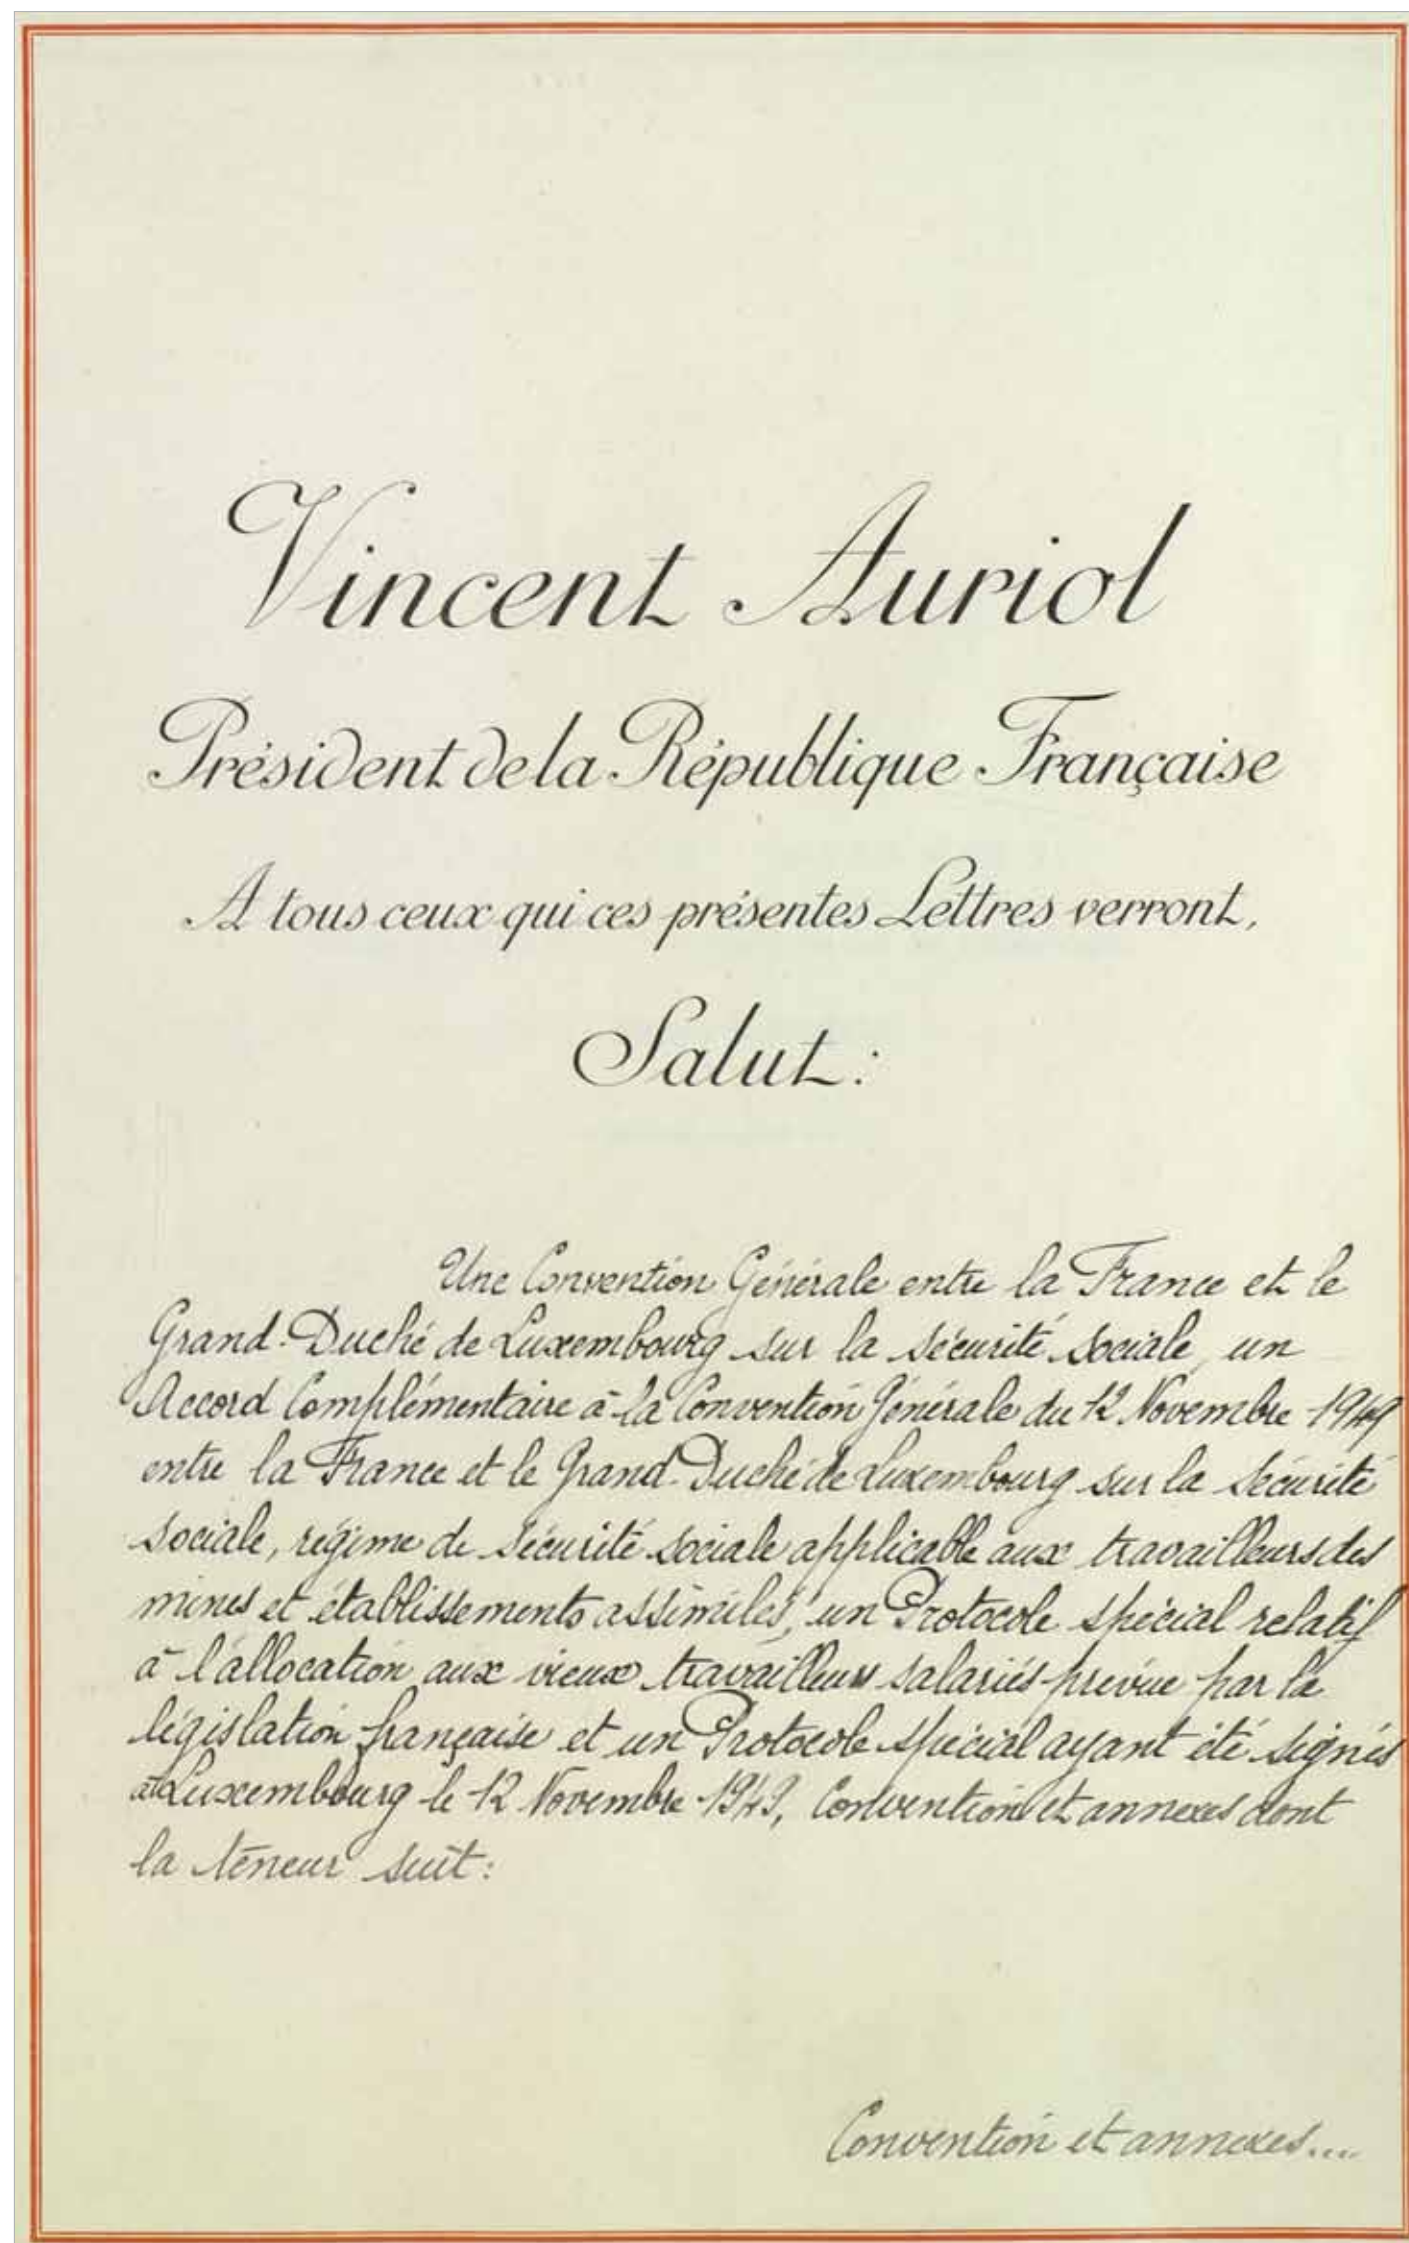 Vincent Auriol
Président de la République Française
A tous ceux qui ces présentes Lettres verront,
Salut :
Une Convention Générale entre la France et le
Grand-Duché de Luxembourg sur la sécurité sociale, un
Accord Complémentaire à la Convention Générale du 12 Novembre 1949
entre la France et le Grand-Duché de Luxembourg sur la sécurité
sociale, régime de sécurité sociale applicable aux travailleurs des
mines et établissements assimilés, un Protocole spécial relatif
à l'allocation aux vieux travailleurs salariés prévue par la
législation française et un Protocole spécial ayant été signés
à Luxembourg le 12 Novembre 1949, Convention et annexes dont
la teneur suit :
Convention et annexes....